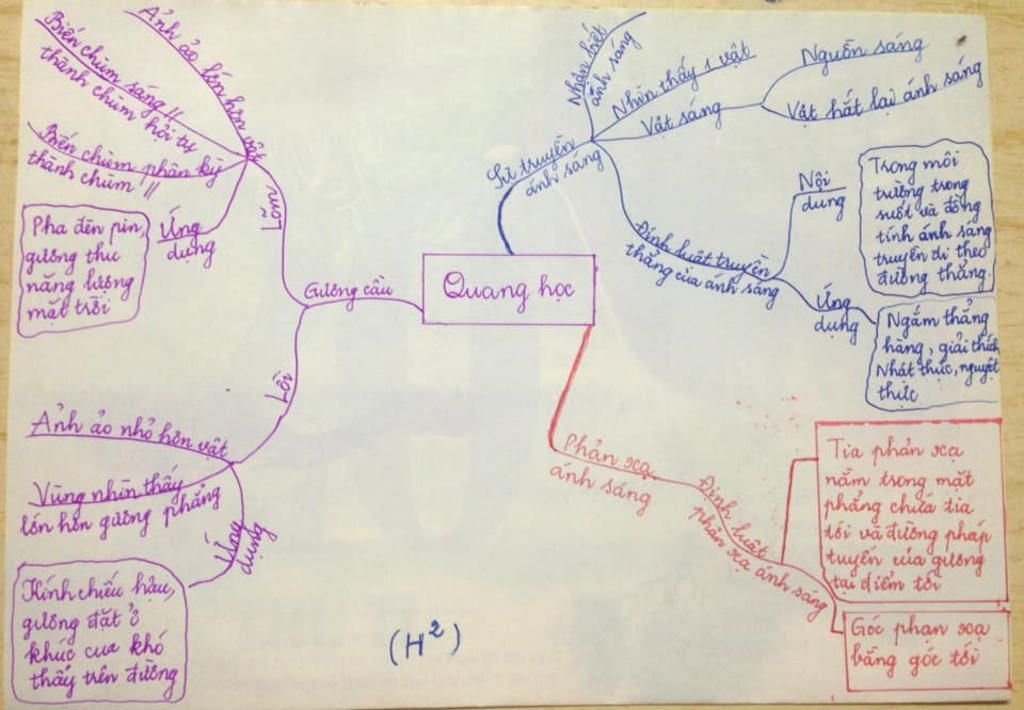 Quang học
Sự truyền
ánh sáng
Nhận biết
ánh sáng
Nhìn thấy 1 vật
Vật sáng
Nguồn sáng
Vật hắt lại ánh sáng
Định luật truyền
thẳng của ánh sáng
Nội
dung
Trong môi
trường trong
suốt và đồng
tính ánh sáng
truyền đi theo
đường thẳng.
Ứng
dụng
Ngắm thẳng
hàng, giải thích
Nhật thực, nguyệt
thực
Phản xạ
ánh sáng
Định luật
phản xạ ánh sáng
Tia phản xạ
nằm trong mặt
phẳng chứa tia
tới và đường pháp
tuyến của gương
tại điểm tới
Góc phản xạ
bằng góc tới
Gương cầu
Lõm
Ảnh ảo lớn hơn vật
Biến chùm sáng //
thành chùm hội tụ
Biến chùm phân kỳ
thành chùm //
Ứng
dụng
Pha đèn pin,
gương thu
năng lượng
mặt trời
Lồi
Ảnh ảo nhỏ hơn vật
Vùng nhìn thấy
lớn hơn gương phẳng
Ứng
dụng
Kính chiếu hậu,
gương đặt ở
khúc cua khó
thấy trên đường
(H²)